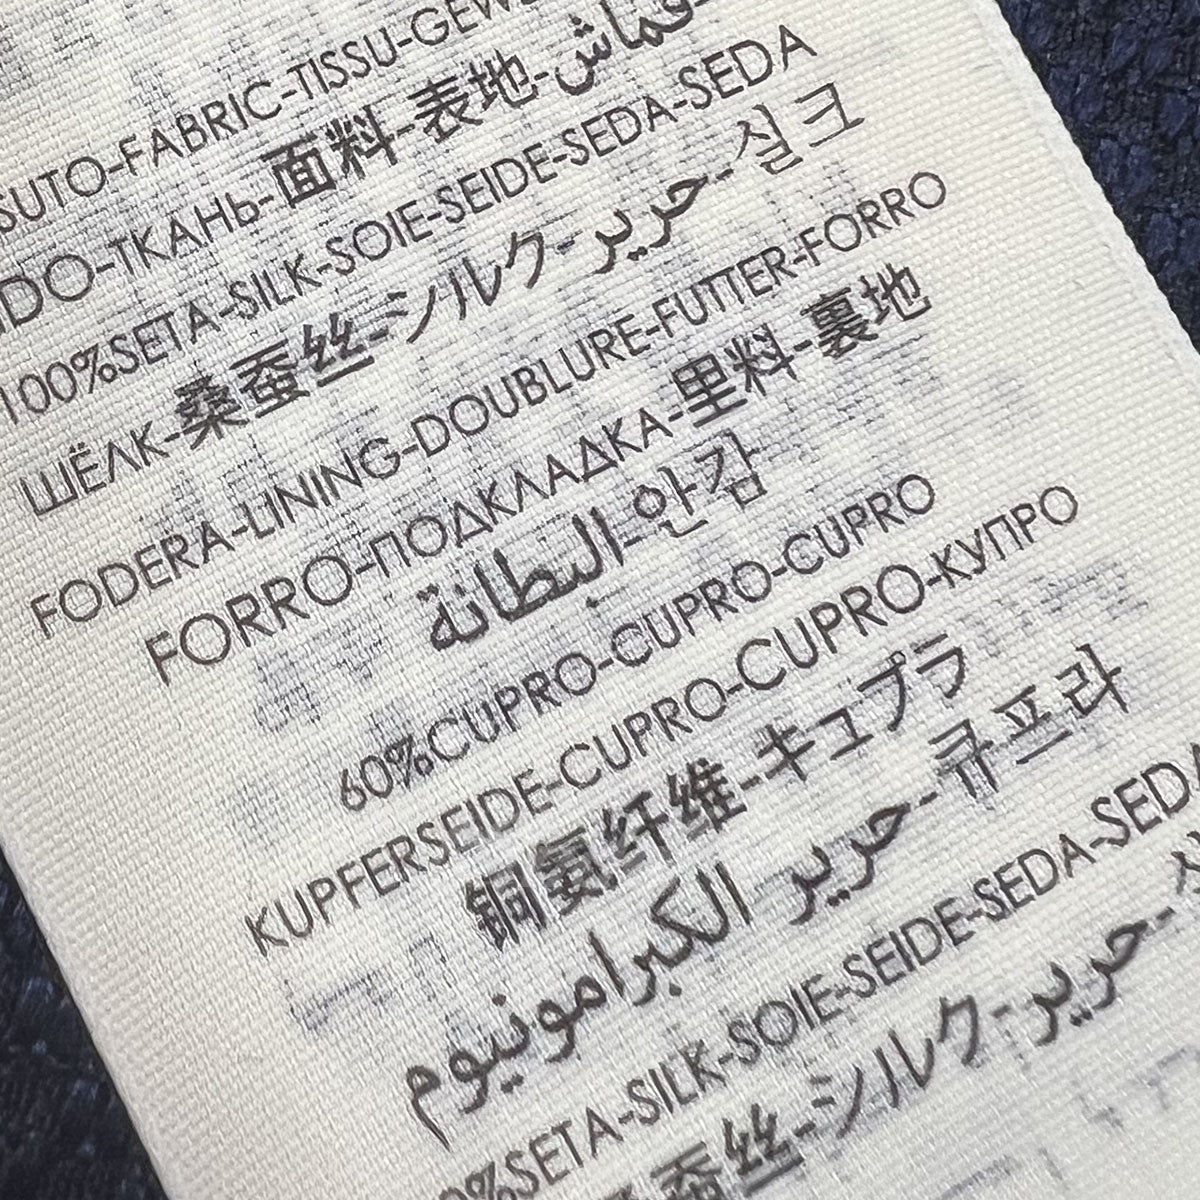 SUTO-FABRIC-TISSU-GEWE
DO-ТКАНЬ-面料-表地-قماش-
100%SETA-SILK-SOIE-SEIDE-SEDA-SEDA
ШЁЛК-桑蚕丝-シルク-حرير-실크
FODERA-LINING-DOUBLURE-FUTTER-FORRO
FORRO-ПОДКЛАДКА-里料-裏地
البطانة-안감
60%CUPRO-CUPRO-CUPRO
KUPFERSEIDE-CUPRO-CUPRO-КУПРО
铜氨纤维-キュプラ
حرير الكبرامونيوم-큐프라
0%SETA-SILK-SOIE-SEIDE-SEDA-SEDA
蚕丝-シルク-حرير-